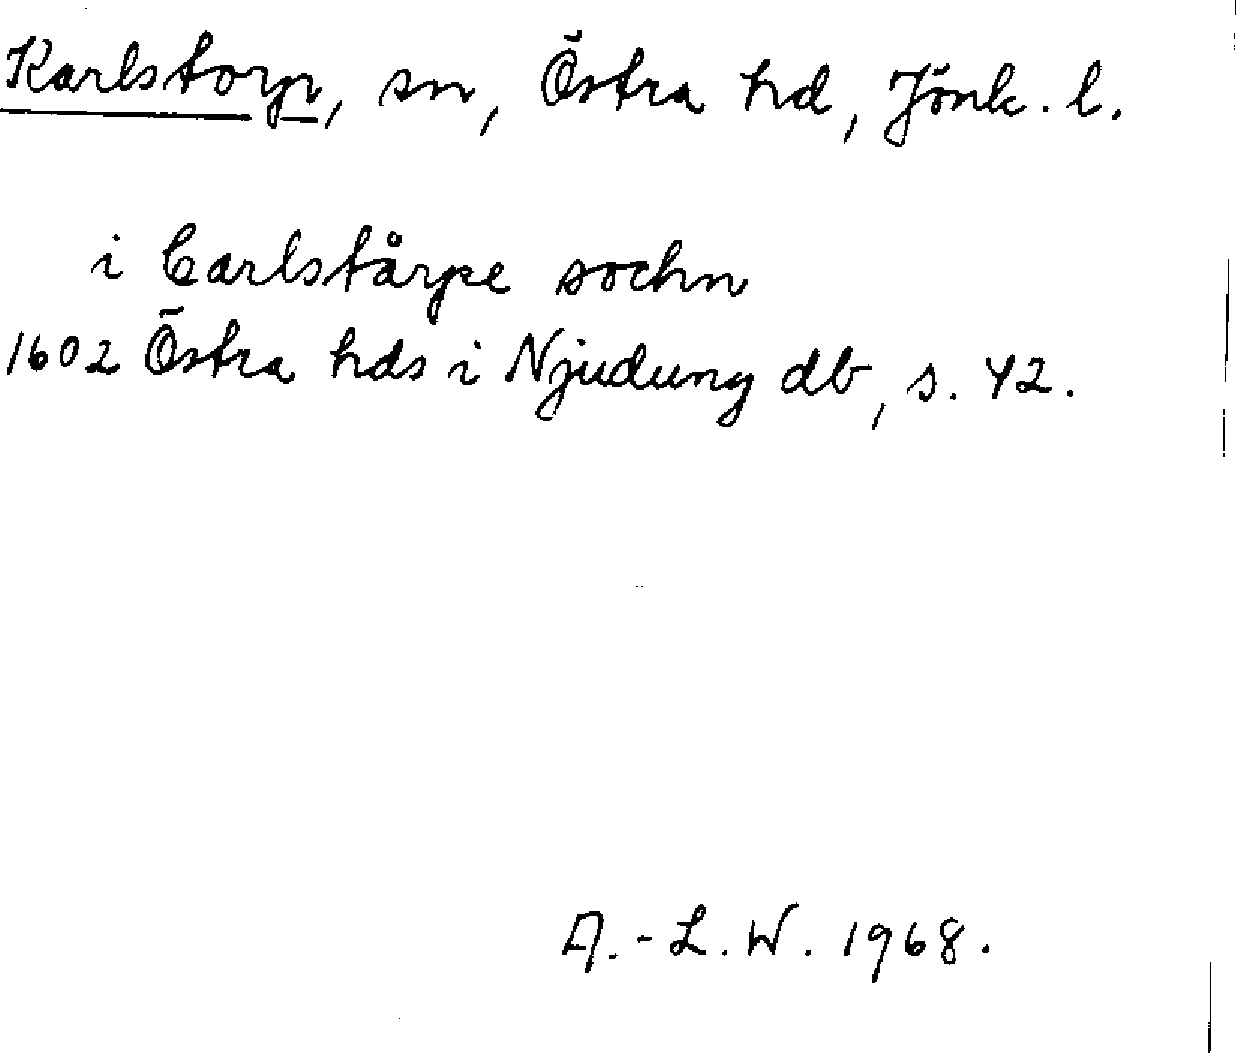 Karlstorp, sn, Östra hd, Jönk. l.
i Carlstårpe sochn
1602 Östra hds i Njudung db, s. 42.
A.-L. W. 1968.